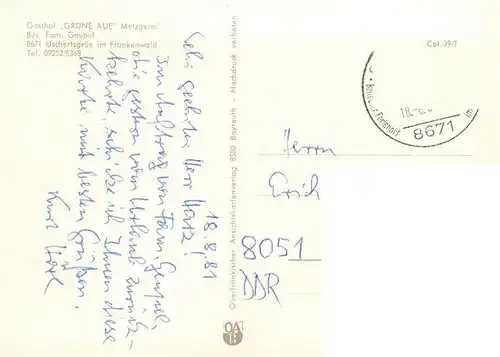 Gasthof „GRÜNE AUE" Metzgerei
Bes. Fam. Geupel
8671 Uschertsgrün im Frankenwald
Tel. 09252/5368
18.8.81
Sehr geehrter Herr
Im Auftrag von Fam. Geupel,
die gestern vom Urlaub zurück-
kehrte, schicke ich Ihnen diese
Karte mit besten Grüßen.
Kurt
Oberfränkischer Ansichtskartenverlag 8580 Bayreuth – Nachdruck verboten
Col. 39/1
8671
Herrn
Erich
8051
DDR